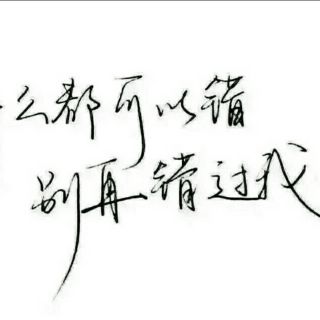 么都可以错
别再错过我